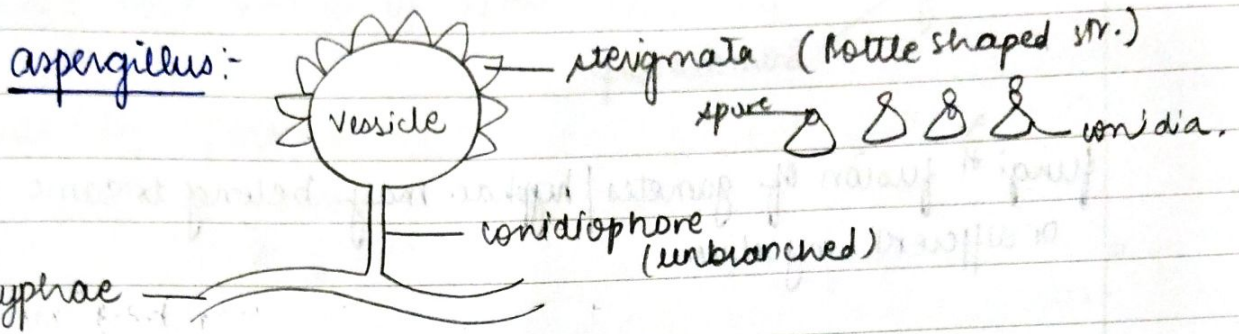 aspergillus:-
sterigmata (Bottle shaped str.)
vessicle
spore
conidia.
conidiophore
(unbranched)
yphae